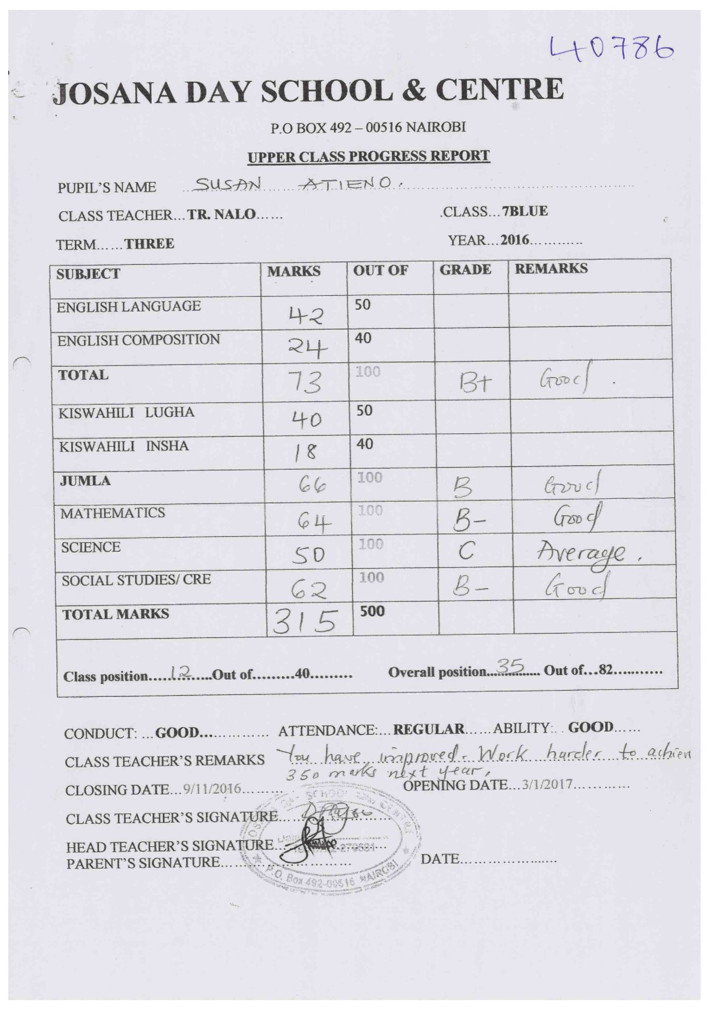 40786
JOSANA DAY SCHOOL & CENTRE
P.O BOX 492 – 00516 NAIROBI
UPPER CLASS PROGRESS REPORT
PUPIL'S NAME SUSAN ATIENO.
CLASS TEACHER...TR. NALO...... .CLASS...7BLUE
TERM......THREE YEAR...2016............
SUBJECT MARKS OUT OF GRADE REMARKS
ENGLISH LANGUAGE 42 50
ENGLISH COMPOSITION 24 40
TOTAL 73 100 B+ Good .
KISWAHILI LUGHA 40 50
KISWAHILI INSHA 18 40
JUMLA 66 100 B Good
MATHEMATICS 64 100 B- Good
SCIENCE 50 100 C Average .
SOCIAL STUDIES/ CRE 62 100 B- Good
TOTAL MARKS 315 500
Class position......12......Out of.........40......... Overall position......35...... Out of...82............
CONDUCT: ...GOOD................ ATTENDANCE:...REGULAR......ABILITY:. . GOOD......
CLASS TEACHER'S REMARKS You have improved. Work harder to achieve
350 marks next year.
CLOSING DATE...9/11/2016......... OPENING DATE...3/1/2017.............
CLASS TEACHER'S SIGNATURE
HEAD TEACHER'S SIGNATURE
PARENT'S SIGNATURE DATE......................
P.O. Box 492-00516 NAIROBI